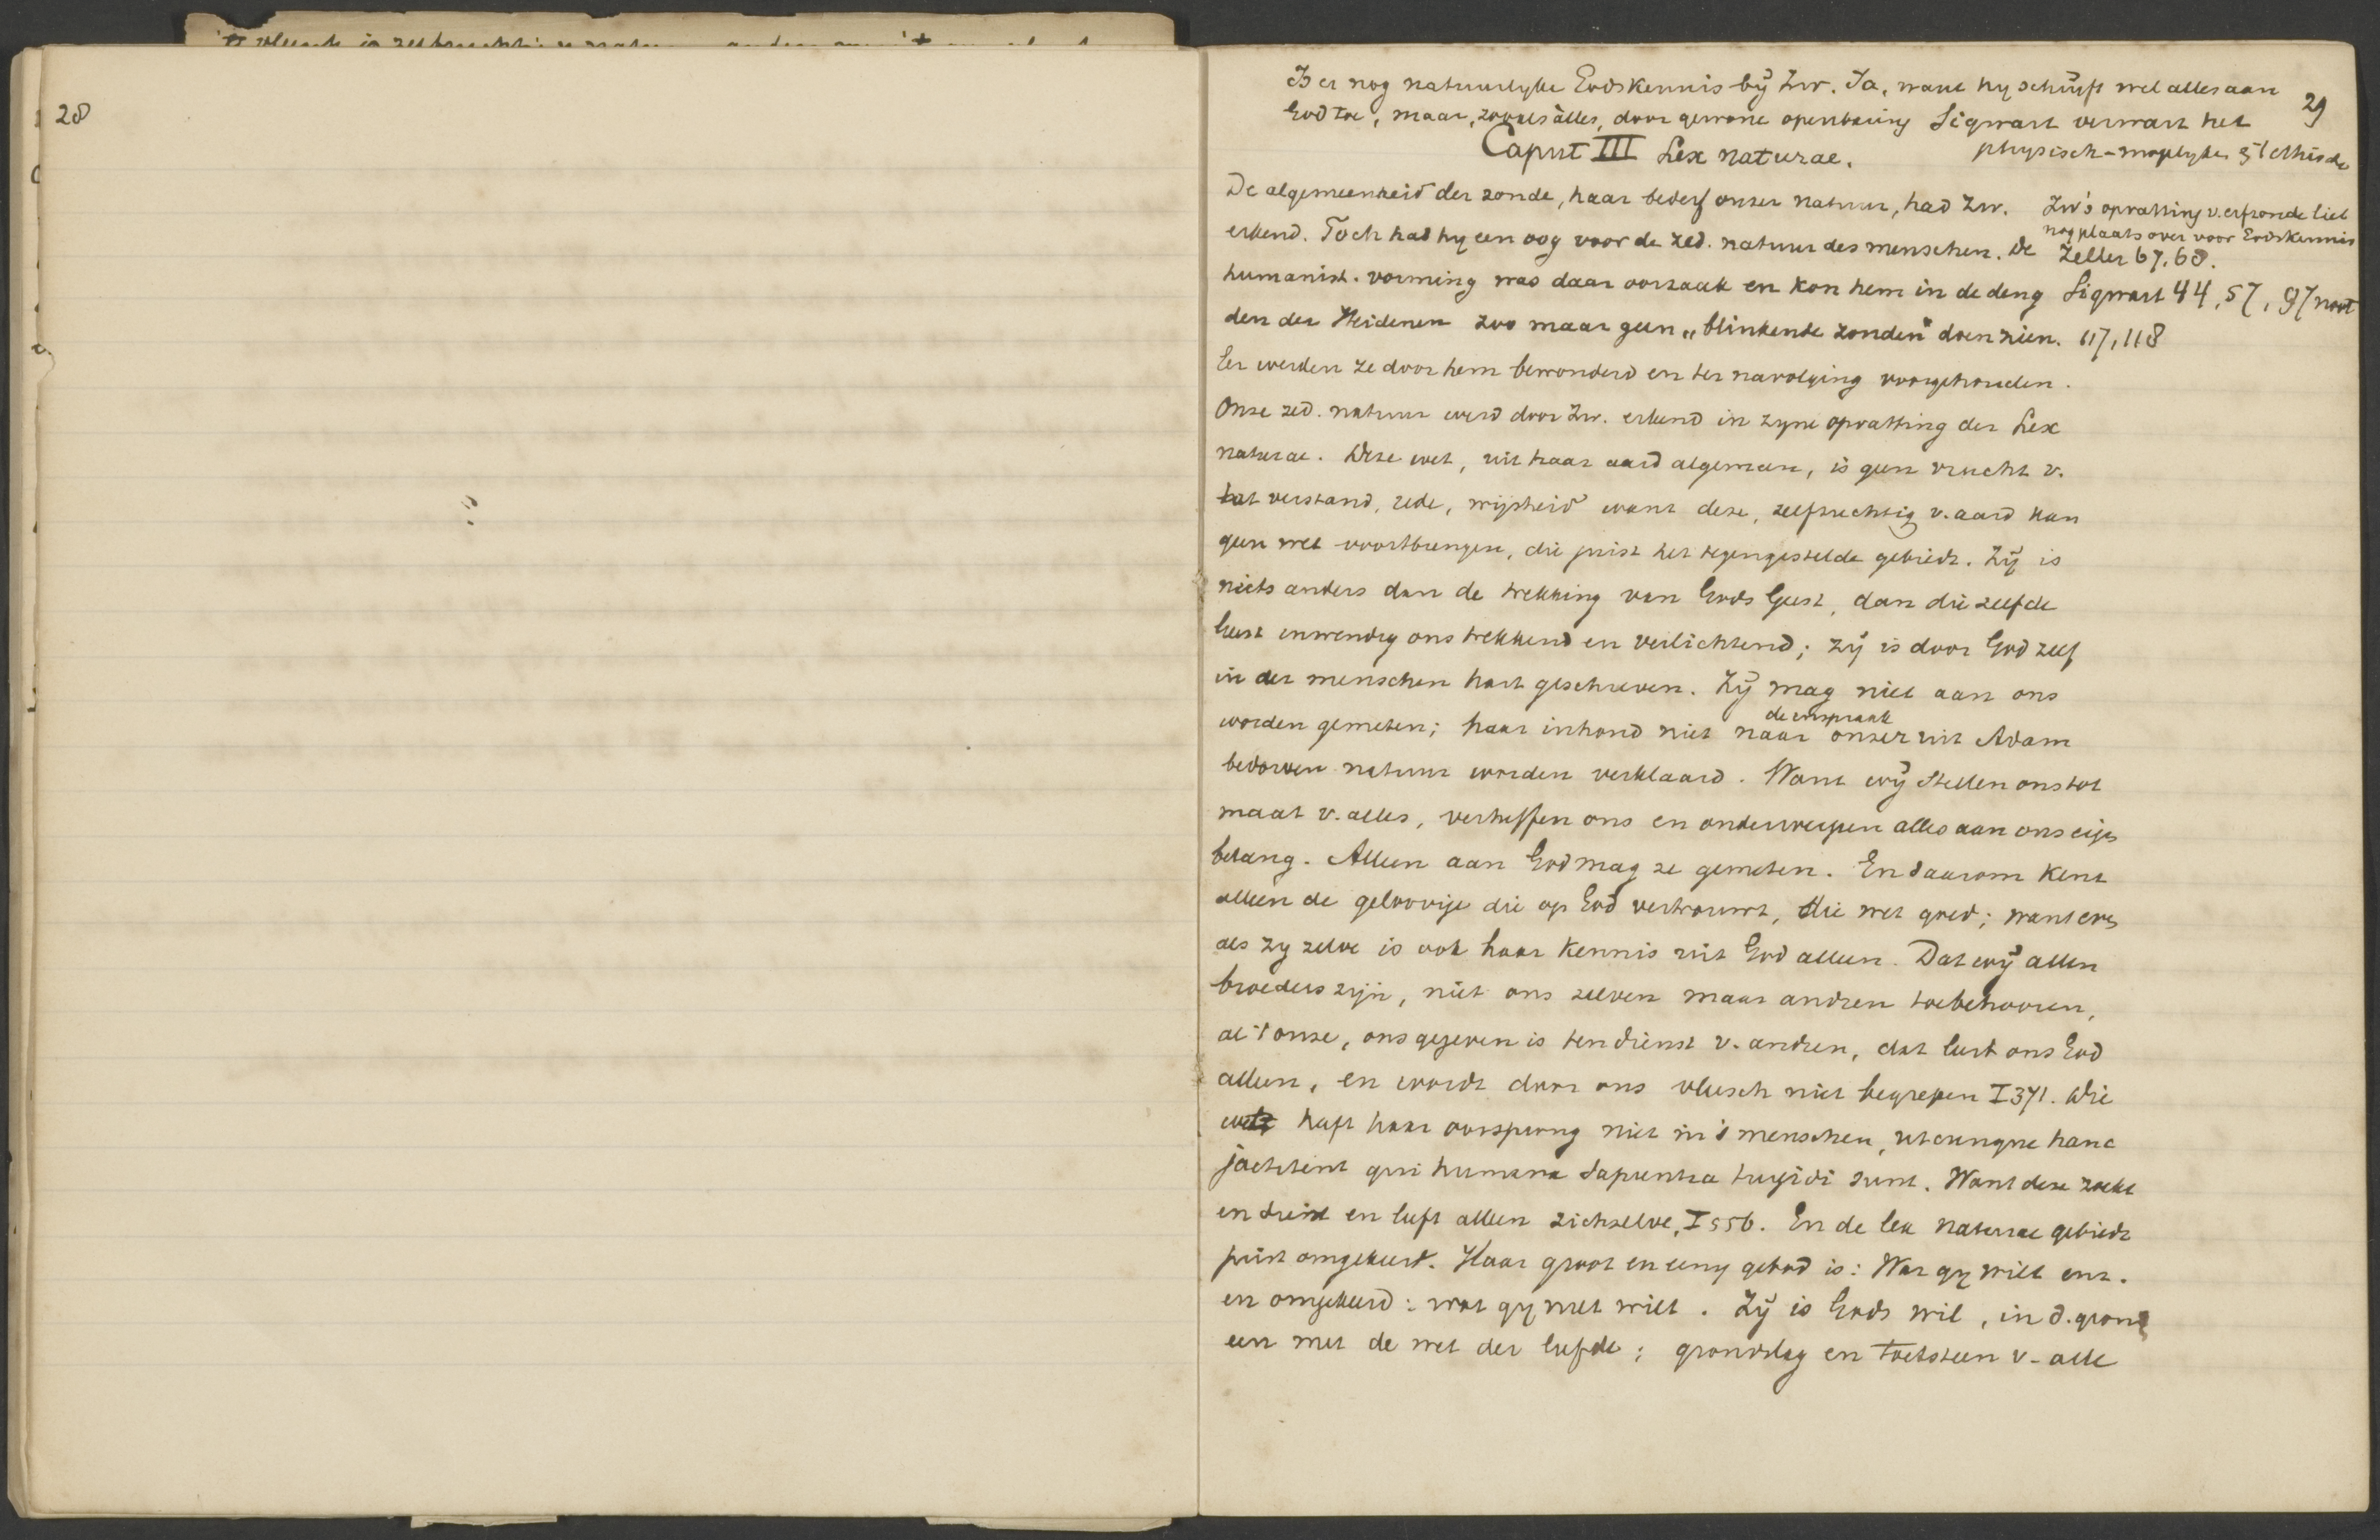 28
29
Is er nog natuurlyke Godskennis bÿ Zw. Ja, want hy schrijft wel alles aan
God toe, maar, zooals àlles, door gewone openbaring Sigwart verwart het
physisch-mogelyke & 't ethische
Caput III Lex naturae.
De algemeenheid der zonde, haar bederf onzer natuur, had Zw.
erkend. Toch had hy een oog voor de zed. natuur des menschen. De
humanist. vorming was daar oorzaak en kon hem in de deug
den der Heidenen zoo maar geen „blinkende zonden" doen zien.
Eer werden ze door hem bewonderd en ter navolging voorgehouden.
Zw's opvatting v. erfzonde liet
nog plaats over voor Godskennis
Zeller 67, 68.
Sigwart 44, 57, 97 noot
117, 118
Onze zed. natuur werd door Zw. erkend in zyne opvatting der Lex
naturae. Deze wet, uit haar aard algemeen, is geen vrucht v.
verstand, rede, wijsheid want deze, zelfzuchtig v. aard kan
geen wet voortbrengen, die juist het tegengestelde gebiedt. Zÿ is
niets anders dan de trekking van Gods Geest, dan die zelfde
Geest inwendig ons trekkend en verlichtend; zÿ is door God zelf
in der menschen hart geschreven. Zÿ mag niet aan ons
worden gemeten; haar inhoud niet naar de uitspraak onzer uit Adam
bedorven natuur worden verklaard. Want wÿ stellen ons tot
maat v. alles, verheffen ons en onderwerpen alles aan ons eigen
belang. Alleen aan God mag ze gemeten. En daarom kent
alleen de geloovige die op God vertrouwt, die wet goed; want even
als zy zelve is ook haar kennis uit God alleen. Dat wÿ allen
broeders zijn, niet ons zelven maar andren toebehooren,
al 't onze, ons gegeven is ten dienst v. andren, dat leert ons God
alleen, en wordt door ons vleesch niet begrepen I 371. Die
wet heeft haar oorsprong niet in 's menschen, utcunque hanc
jactitent qui humana sapientia turgidi sunt. Want deze zoekt
en dient en lieft alleen zichzelve, I 556. En de lex naturae gebiedt
juist omgekeerd. Haar groot en eenig gebod is: Wat gy wilt enz.
en omgekeerd: wat gy niet wilt. Zÿ is Gods wil, in d. grond
een met de wet der liefde; grondslag en toetssteen v. alle